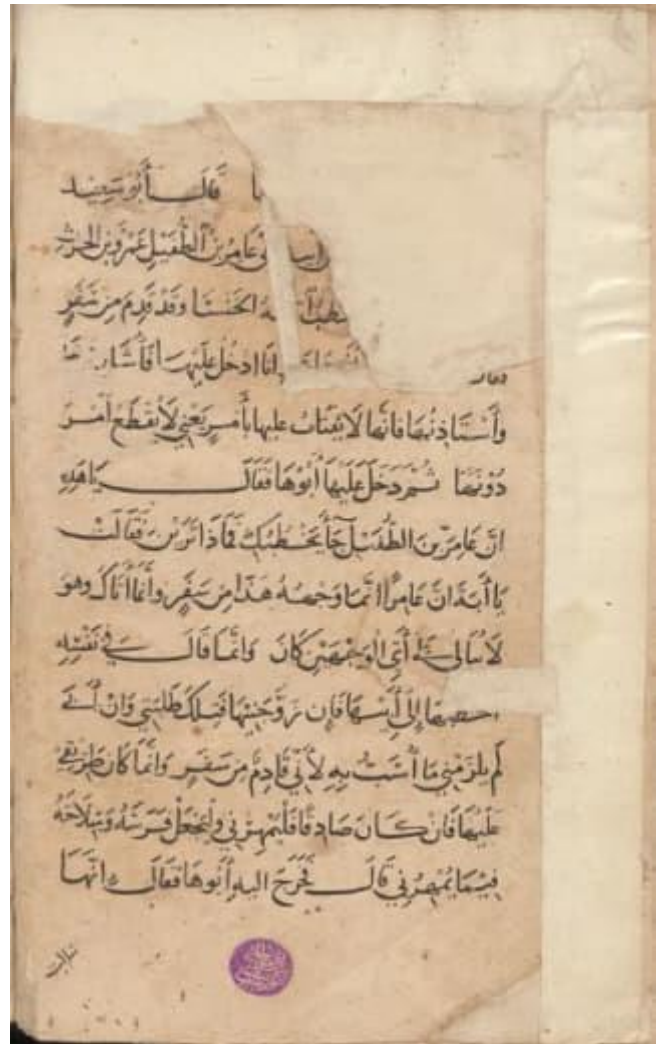 قال أبو سعيد
عامر بن الطفيل عمرو بن الحرث
الخنسا وقد قدم من سفر
انا ادخل عليها فأشار
وأستاذنها فانها لا يفتات عليها بأمر يعني لا يقطع امر
دونها ثم دخل عليها أبوها فقال يا هذه
ان عامر بن الطفيل جأ يخطبك فماذا ترين فقالت
يا أبه ان عامرا انما وجهه هذا من سفر وانما أتاك وهو
لا يبالي أي الوجهين كان وانما قال في نفسه
إلى أبيها فان زوجنيها فتلك طلبتي وان أبي
لم يلزمني ما أسب به لأني قادم من سفر وانما كان طريقي
عليها فان كان صادقا فليمهرني وليجعل فرسه وسلاحه
فيما يمهرني قال فخرج اليه أبوها فقال انها